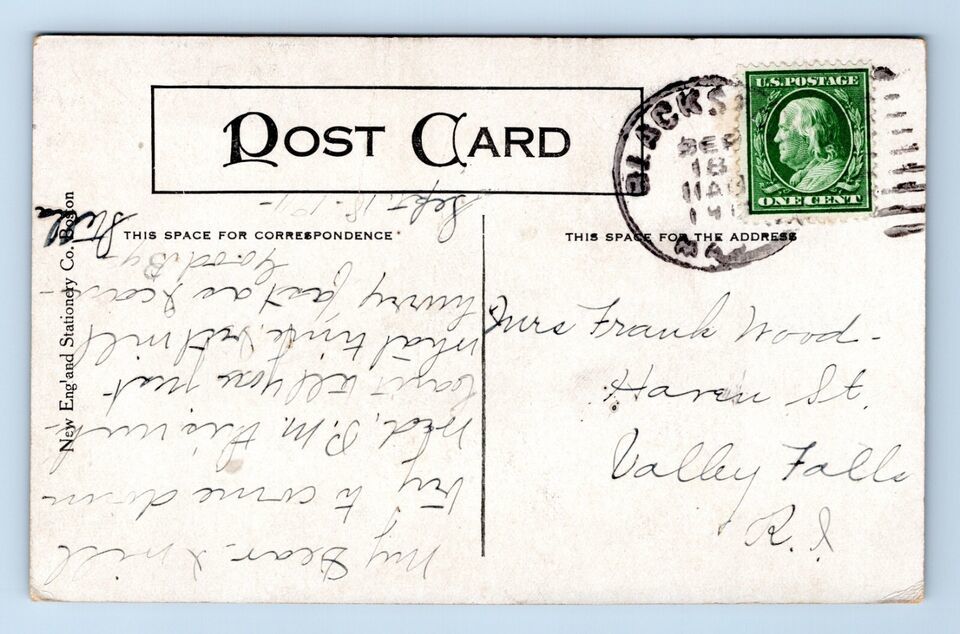 POST CARD
THIS SPACE FOR CORRESPONDENCE
THIS SPACE FOR THE ADDRESS
New England Stationery Co. Boston
U.S. POSTAGE
ONE CENT
BLACKS
SEP
18
11 A
191
MA
Mrs Frank Wood-
Haven St.
Valley Falls
R.I.
Sept. 18-1911-
My Dear- I will
try to come down
Wed, P.M. this week-
can't tell you just
what time, but will
hurry fast as I can-
Good By-
Still